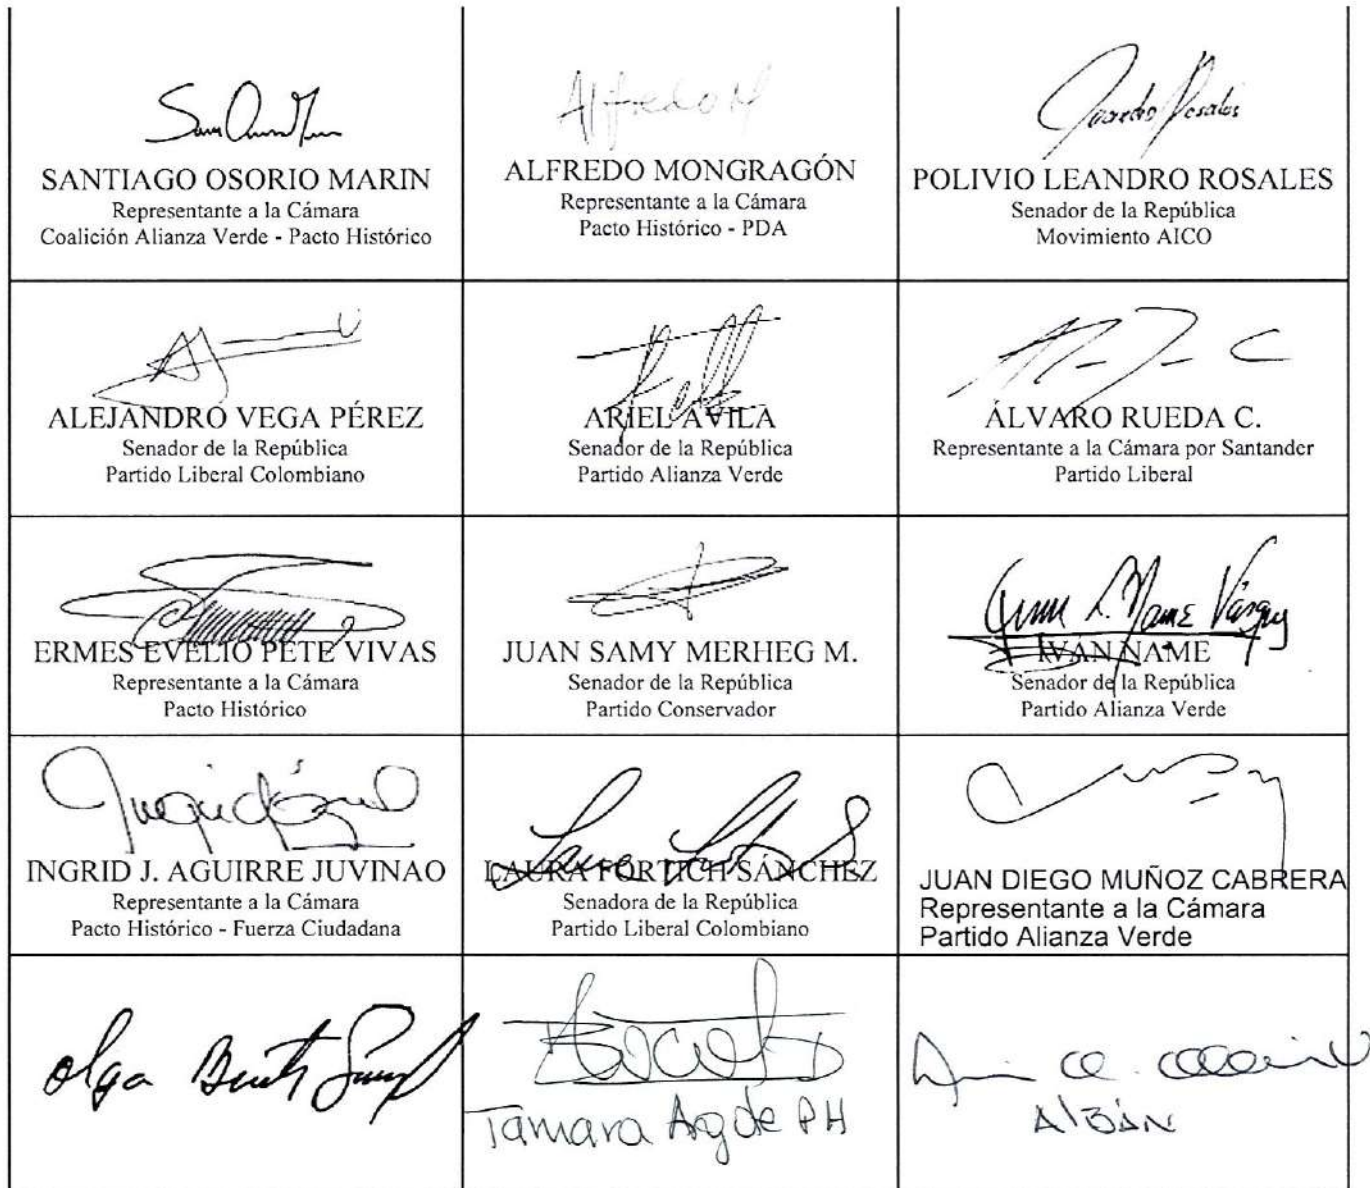 SANTIAGO OSORIO MARIN
Representante a la Cámara
Coalición Alianza Verde - Pacto Histórico
Alfredo M
ALFREDO MONGRAGÓN
Representante a la Cámara
Pacto Histórico - PDA
Rosales
POLIVIO LEANDRO ROSALES
Senador de la República
Movimiento AICO
ALEJANDRO VEGA PÉREZ
Senador de la República
Partido Liberal Colombiano
ARIEL AVILA
Senador de la República
Partido Alianza Verde
ÁLVARO RUEDA C.
Representante a la Cámara por Santander
Partido Liberal
ERMES EVELIO PETE VIVAS
Representante a la Cámara
Pacto Histórico
JUAN SAMY MERHEG M.
Senador de la República
Partido Conservador
Name Vásquez
IVÁN NAME
Senador de la República
Partido Alianza Verde
INGRID J. AGUIRRE JUVINAO
Representante a la Cámara
Pacto Histórico - Fuerza Ciudadana
LAURA FORTICH SÁNCHEZ
Senadora de la República
Partido Liberal Colombiano
JUAN DIEGO MUÑOZ CABRERA
Representante a la Cámara
Partido Alianza Verde
Olga
Tamara Argote PH
Albán